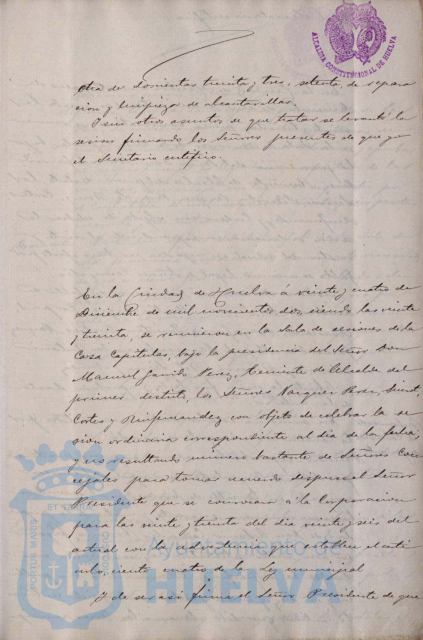 ALCALDIA CONSTITUCIONAL DE HUELVA
otra de doscientas treinta y tres, setenta, de repara
cion y limpieza de alcantarillas.
I sin otros asuntos de que tratar se levantó la
sesion firmando los Señores presentes de que yo
el Secretario certifico.
En la Ciudad de Huelva á veinte y cuatro de
Diciembre de mil novecientos dos, siendo las veinte
y treinta, se reunieron en la Sala de sesiones de la
Casa Capitular, bajo la presidencia del Señor Don
Manuel Garrido Perez, Teniente de Alcalde del
primer distrito, los Señores Vazquez Perez,
Cortes y con objeto de celebrar la se
sion ordinaria correspondiente al dia de la fecha,
y no resultando número bastante de Señores Con
cejales para tomar acuerdo dispuso el Señor
Presidente que se convocara á la Corporacion
para las veinte y treinta del dia veinte y seis del
actual con la advertencia que establece el artí
culo ciento cuatro de la Ley municipal
Y de ser asi firma el Señor Presidente de que
PORTUS MARIS
Ayuntamiento de
HUELVA